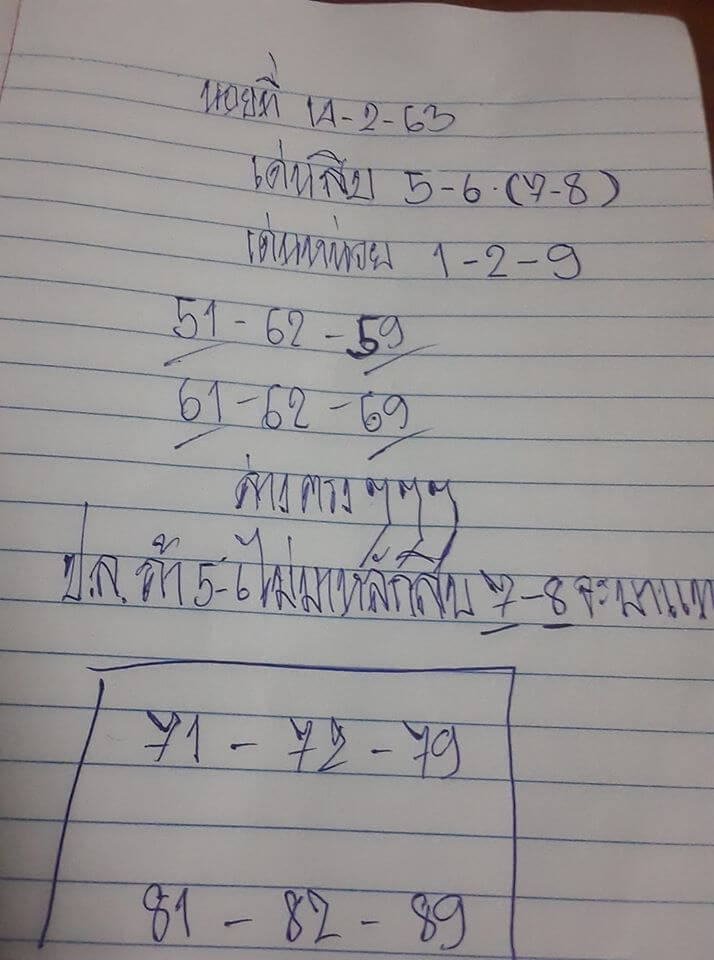 หวยที่ 14-2-63
เด่นสิบ 5-6.(7-8)
เด่นหน่วย 1-2-9
51-62-59
61-62-69
ล่างตรง ๆๆๆ
ป.ล. ถ้า 5-6 ไม่มาหลักสิบ 7-8 จะมาแท
71 - 72 - 79
81 - 82 - 89